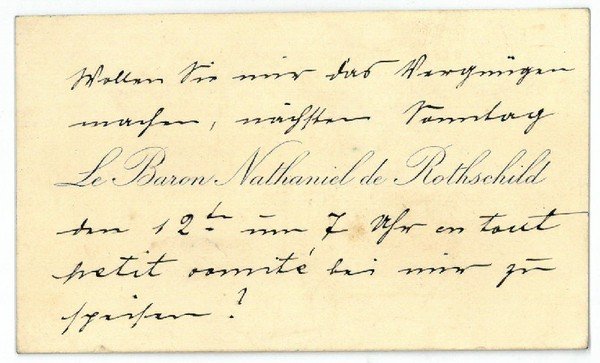 Wollen Sie mir das Vergnügen
machen, nächsten Sonntag
Le Baron Nathaniel de Rothschild
den 12ten um 7 Uhr en tout
petit comité bei mir zu
speisen?